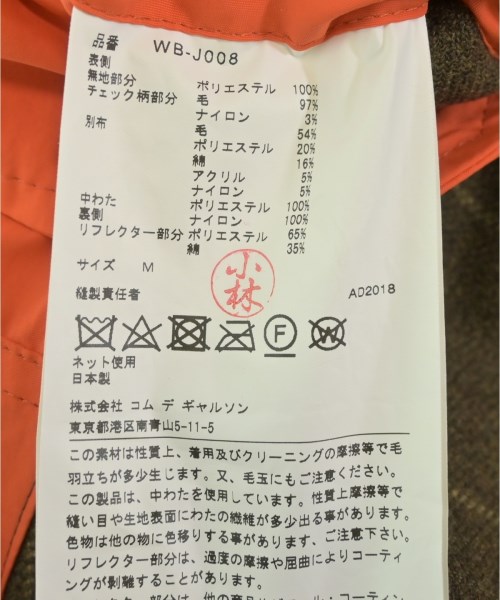 品番 WB-J008
表側
無地部分 ポリエステル 100%
チェック柄部分 毛 97%
ナイロン 3%
別布 毛 54%
ポリエステル 20%
綿 16%
アクリル 5%
ナイロン 5%
中わた ポリエステル 100%
裏側 ナイロン 100%
リフレクター部分 ポリエステル 65%
綿 35%
サイズ M
小林
縫製責任者 AD2018
F W
ネット使用
日本製
株式会社 コム デ ギャルソン
東京都港区南青山5-11-5
この素材は性質上、着用及びクリーニングの摩擦等で毛
羽立ちが多少生じます。又、毛玉にもご注意ください。
この製品は、中わたを使用しています。性質上摩擦等で
縫い目や生地表面にわたの繊維が多少出る事があります。
色物は他の物に色移りする事があります、ご注意下さい。
リフレクター部分は、過度の摩擦や屈曲によりコーティ
ングが剥離することがあります。